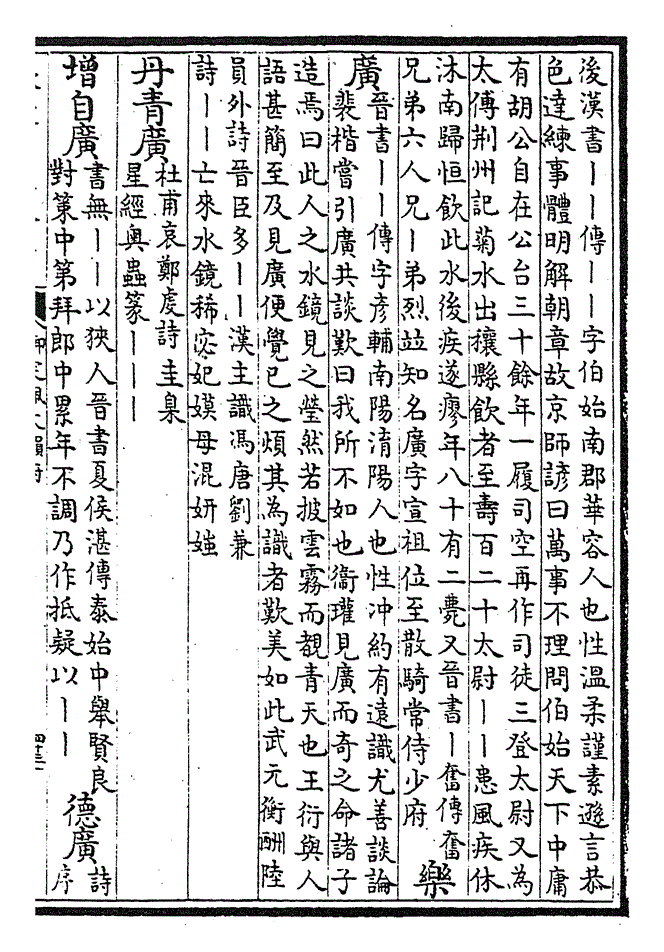 後漢書丨丨傳丨丨字伯始南郡華容人也性溫柔謹素遜言恭
色達練事體明解朝章故京師諺曰萬事不理問伯始天下中庸
有胡公自在公台三十餘年一履司空再作司徒三登太尉又為
太傅荆州記菊水出穰縣飲者至壽百二十太尉丨丨患風疾休
沐南歸恒飲此水後疾遂瘳年八十有二薨又晉書丨奮傳奮
兄弟六人兄丨弟烈竝知名廣字宣祖位至散騎常侍少府
樂
廣
晉書丨丨傳字彥輔南陽淯陽人也性冲約有遠識尤善談論
裴楷嘗引廣共談歎曰我所不如也衞瓘見廣而奇之命諸子
造焉曰此人之水鏡見之瑩然若披雲霧而覩青天也王衍與人
語甚簡至及見廣便覺已之煩其為識者歎美如此武元衡酬陸
員外詩晉臣多丨丨漢主識馮唐劉兼
詩丨丨亡來水鏡稀宓妃嫫母混妍媸
丹青廣
杜甫哀鄭虔詩圭臬
星經奥蟲篆丨丨丨
增自廣
書無丨丨以狹人晉書夏侯湛傳泰始中舉賢良
對策中第拜郎中累年不調乃作抵疑以丨丨
德廣
詩
序